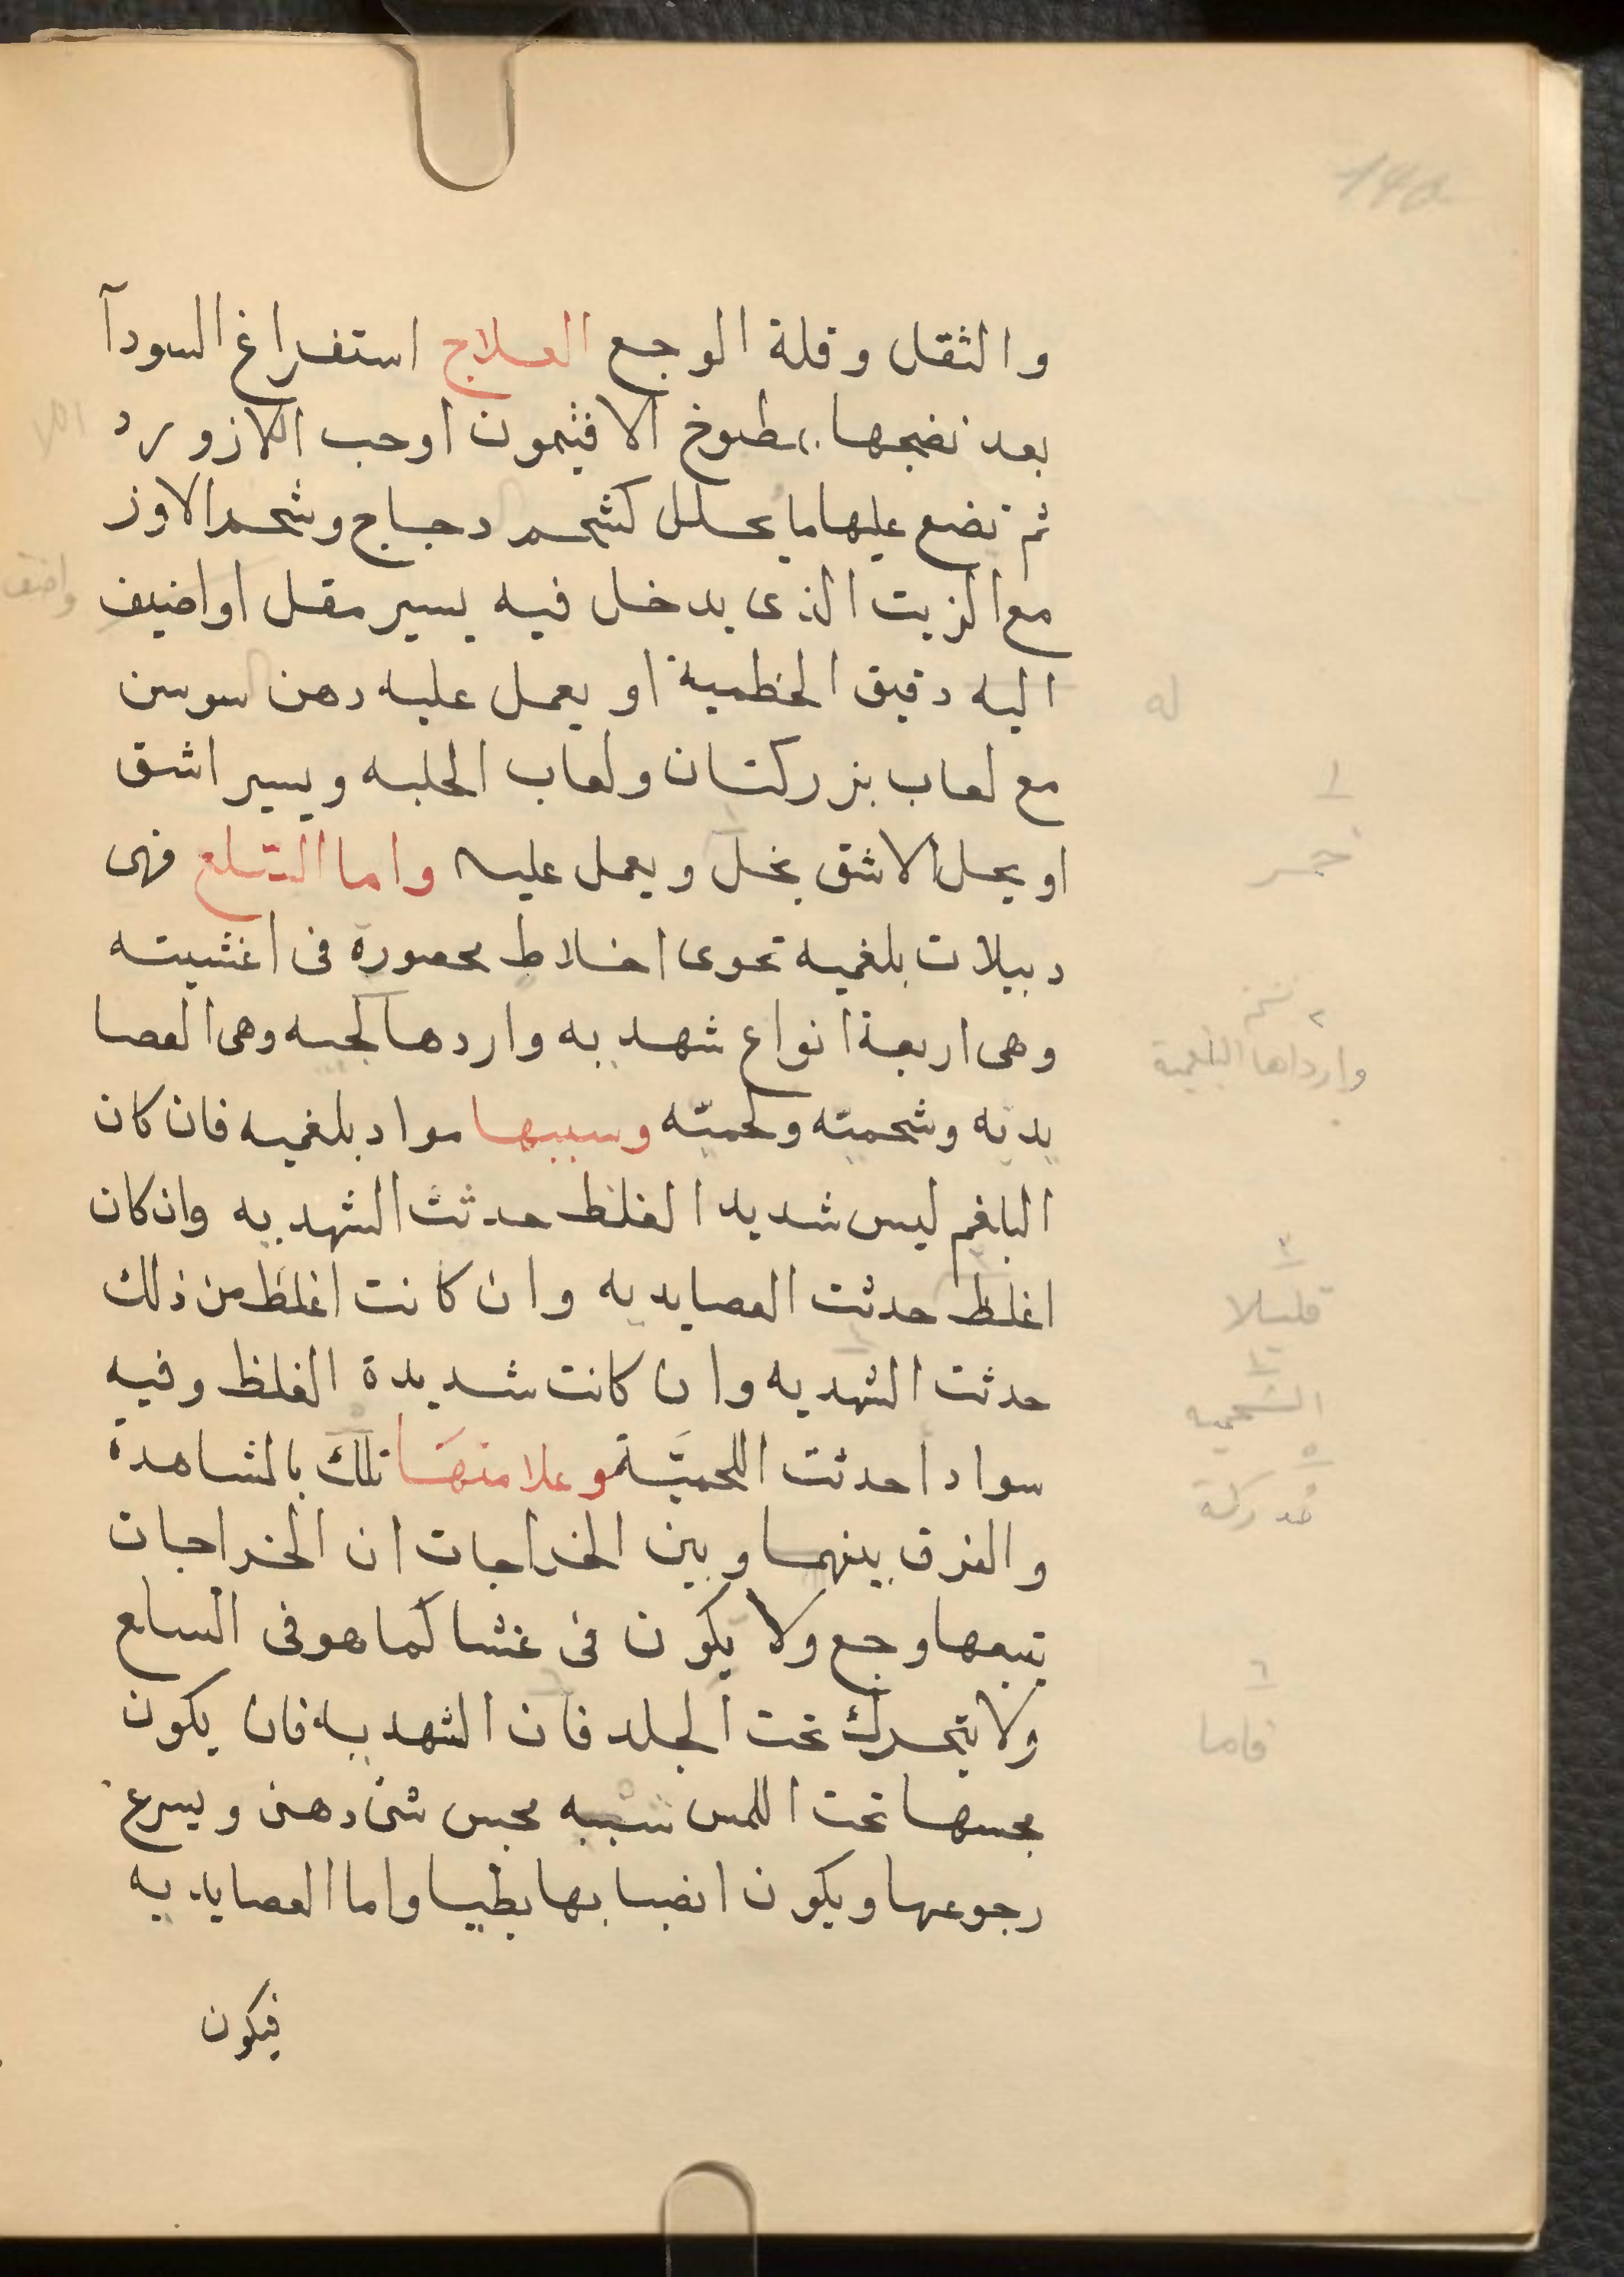 والثقل وقلة الوجع العلاج استفراغ السودآ
بعد نضجها بمطبوخ الافثيمون اوحب اللازورد
ثم تضع عليها ما يحلل كشحم دجاج وشحم الاوز
مع الزيت الذى يدخل فيه يسير مقل او اضيف
اليه دقيق الخطمية او يعمل عليه دهن سوسن
مع لعاب بزركتان ولعاب الحلبه ويسير اشق
او يحل الاشق بخل ويعمل عليه واما السلع فهى
دبيلات بلغميه تحوى اخلاط محصورة فى اغشيته
وهى اربعة انواع شهديه واردها لجيه وهى العصا
يديه وشحميّه ولحميّه وسببها مواد بلغميه فان كان
البلغم ليس شديد الغلظ حدثت الشهديه وان كان
اغلظ حدثت العصايديه وان كانت اغلظ من ذلك
حدثت الشهديه وان كانت شديدة الغلظ وفيه
سواد احدثت اللحميّة وعلامتها تلك بالمشاهدة
والفرق بينهما وبين الخراجات ان الخراجات
يتبعها وجع ولا يكون فى غشا كما هو فى السلع
ولا يتحرك تحت الجلد فان الشهديه فان يكون
مجسها تحت اللمس شبيه مجس شئ دهنى ويسرع
رجوعها ويكون انصبابها بطيا واما العصايديه
فيكون
اللا
واضف
له
١
خمر
٢
وارداها البلغمية
٣
قليلا
الشحميه
٥
مدركة
٦
فاما